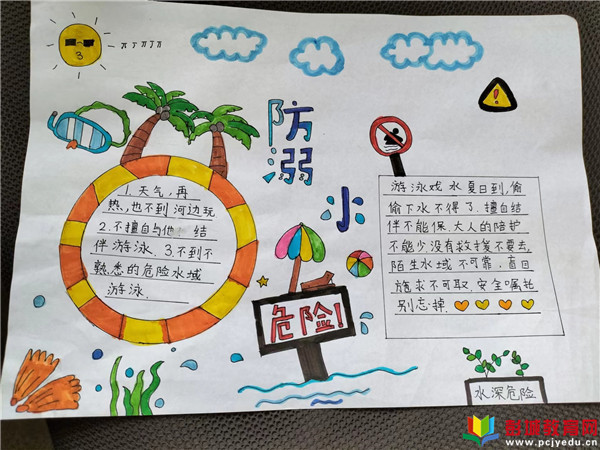 防溺水
1.天气,再
热,也不到河边玩
2.不擅自与他 结
伴游泳.3.不到不
熟悉的危险水域
游泳.
危险!
游泳戏水夏日到,偷
偷下水不得了3.擅自结
伴不能保.大人的陪护
不能少没有救援不要去,
陌生水域不可靠.盲目
施求不可取.安全嘱托
别忘掉.
水深危险
彭城教育网
www.pcjyedu.cn